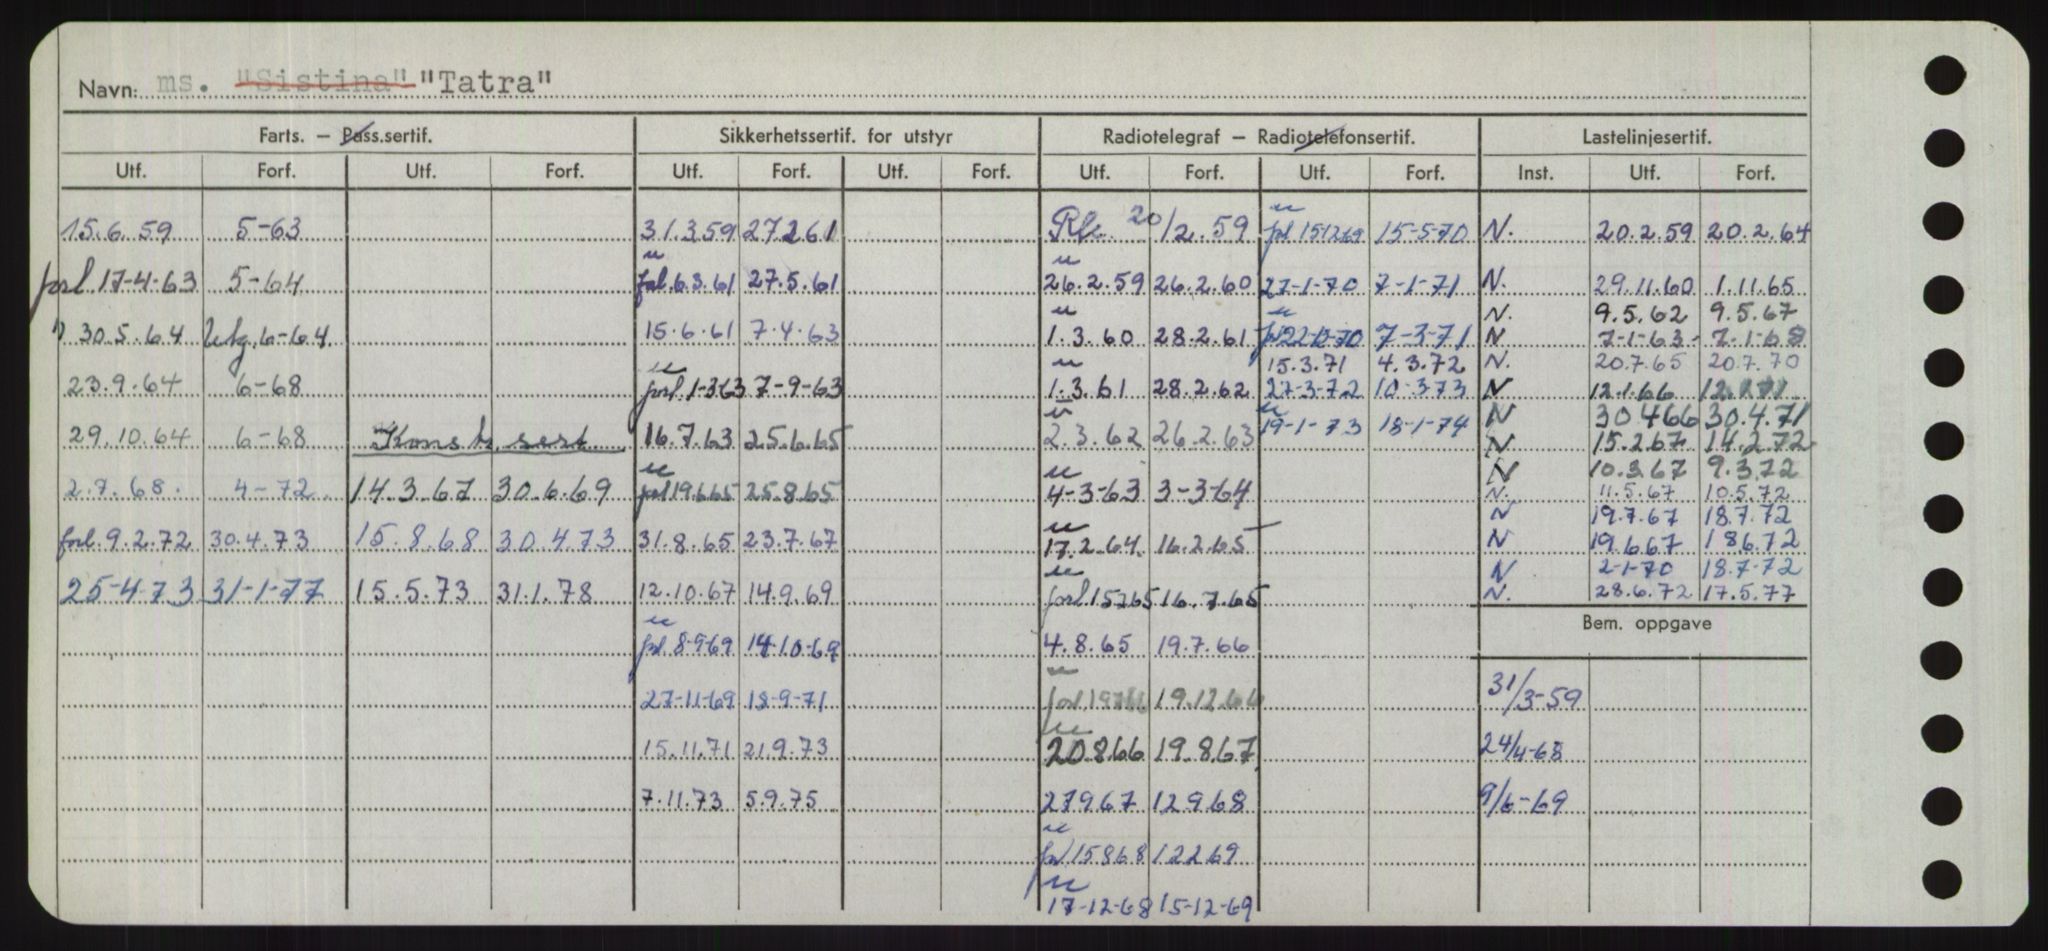 Navn: ms. "Sistina" "Tatra"
Farts. — Pass.sertif. Sikkerhetssertif. for utstyr Radiotelegraf — Radiotelefonsertif. Lastelinjesertif.
Utf. Forf. Utf. Forf. Utf. Forf. Utf. Forf. Utf. Forf. Utf. Forf. Inst. Utf. Forf.
15.6.59 5-63 31.3.59 27.2.61 20/2.59 15-5-70 N. 20.2.59 20.2.64
forl 17-4-63 5-64 6.3.61 27.5.61 26.2.59 26.2.60 27-1-70 7-1-71 N. 29.11.60 1.11.65
N. 9.5.62 9.5.67
1) 30.5.64 Utg. 6-64 15.6.61 7.4.63 1.3.60 28.2.61 7-3-71 N 7-1-63 7-1-68
15.3.71 4.3.72 N. 20.7.65 20.7.70
23.9.64 6-68 forl 1-3-63 7-9-63 1.3.61 28.2.62 27-3-72 10-3-73 N 12.1.66
N 30.4.66 30.4.71
29.10.64 6-68 Konst. sert 16.7.63 25.6.65 2.3.62 26.2.63 19-1-73 18-1-74 N 15.2.67 14.2.72
N 10.3.67 9.3.72
2.7.68. 4-72 14.3.67 30.6.69 19.6.65 25.8.65 4-3-63 3-3-64 N. 11.5.67 10.5.72
N 19.7.67 18.7.72
forl. 9.2.72 30.4.73 15.8.68 30.4.73 31.8.65 23.7.67 17.2.64. 16.2.65 N 19.6.67 18.6.72
N 2-1-70 18.7-72
25-4-73 31-1-77 15.5.73 31.1.78 12.10.67 14.9.69 forl 15.7.65 16.7.65 N. 28.6.72 17.5.77
Bem. oppgave
8-9-69 14-10-69 4.8.65 19.7.66
27-11-69 18-9-71 19.12.66 31/3-59
15.11.71 21.9.73 20.8.66 19.8.67 24/4-68
7.11.73 5.9.75 27.9.67 12.9.68 9/6-69
15.8.68 12.2.69
17-12-68 15-12-69